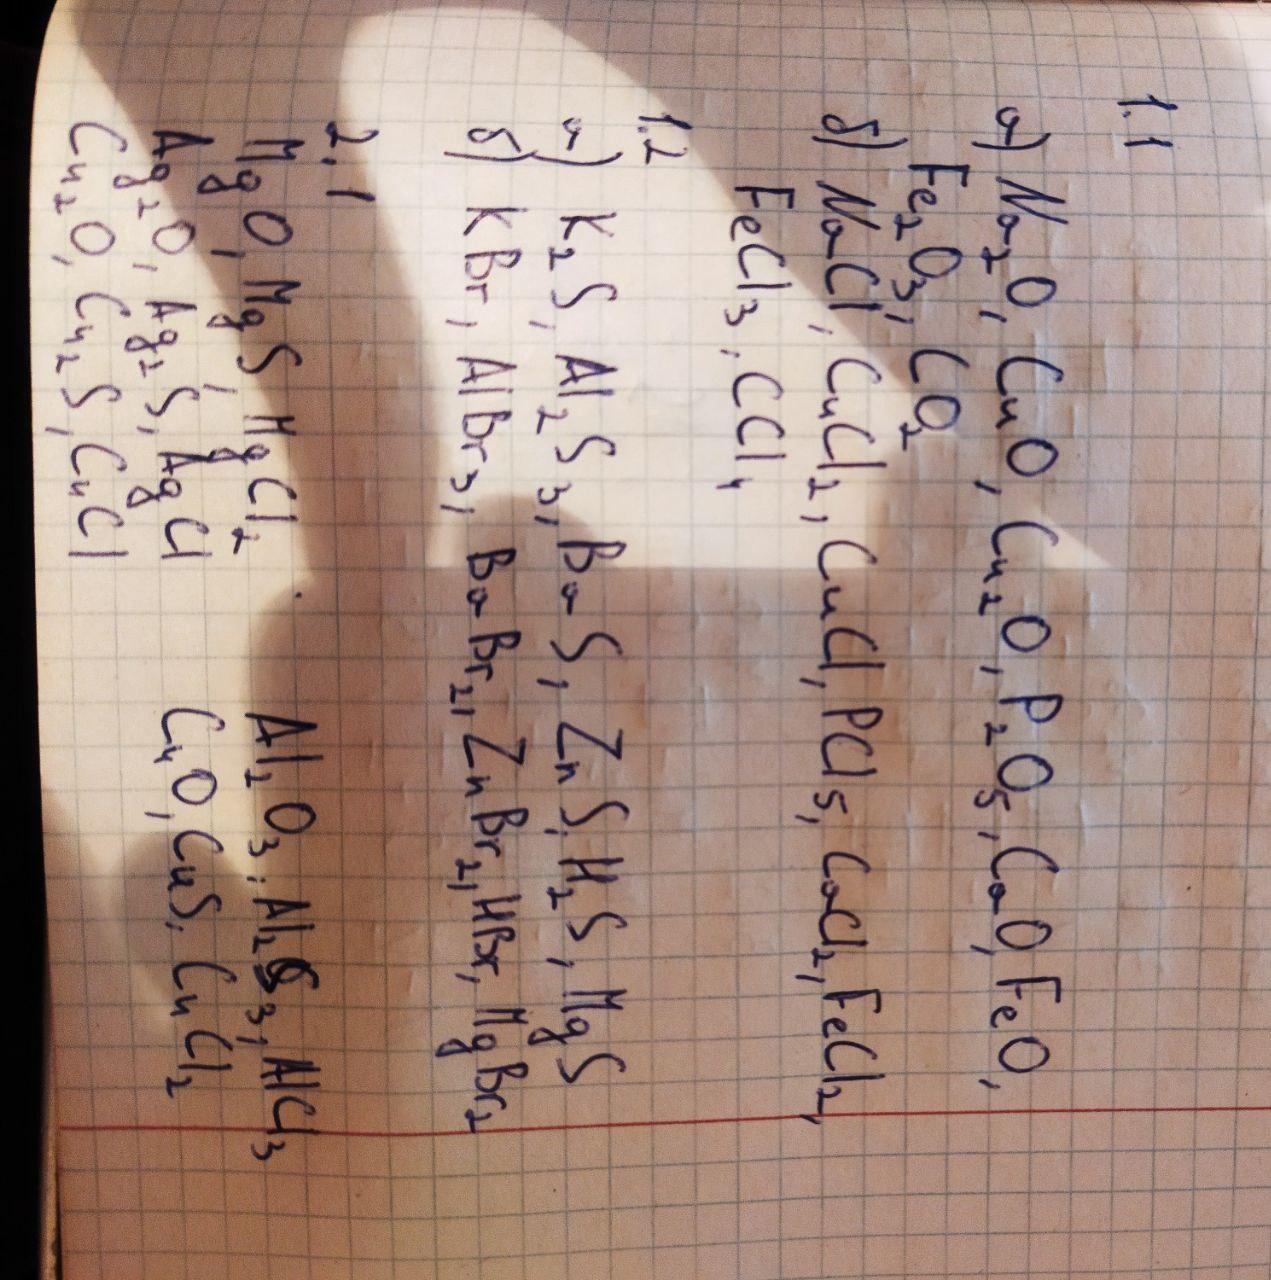 1.1
а) Na₂O, CuO, Cu₂O, P₂O₅, CaO, FeO,
Fe₂O₃, CO₂
б) NaCl, CuCl₂, CuCl, PCl₅, CaCl₂, FeCl₂,
FeCl₃, CCl₄
1.2
а) K₂S, Al₂S₃, BaS, ZnS, H₂S, MgS
б) KBr, AlBr₃, BaBr₂, ZnBr₂, HBr, MgBr₂
2.1
MgO, MgS, MgCl₂ Al₂O₃, Al₂S₃, AlCl₃
Ag₂O, Ag₂S, AgCl CuO, CuS, CuCl₂
Cu₂O, Cu₂S, CuCl